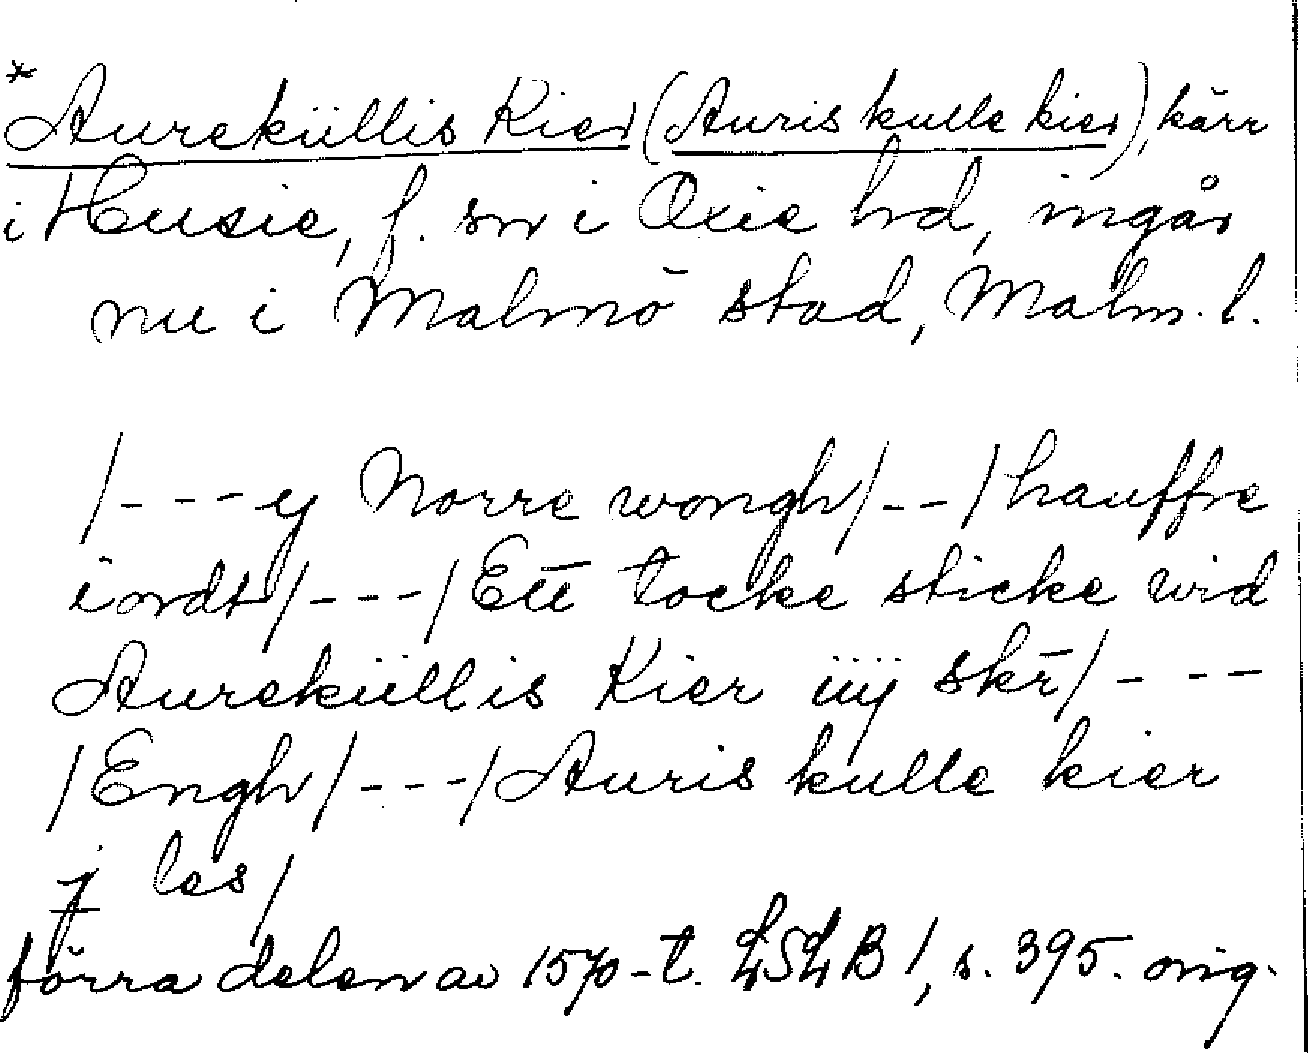 *Aureküllis Kier (Auris kulle kier), kärr
i Husie, f. sn i Oxie hd, ingår
nu i Malmö stad, Malm. l.
/---y Norre wongh/--/hauffre
iordt/---/Ett tocke sticke wid
Aureküllis Kier iiij skr̄/---
/Engh/---/Auris kulle kier
j las/
förra delen av 1570-t. LSLB 1, s. 395. orig.